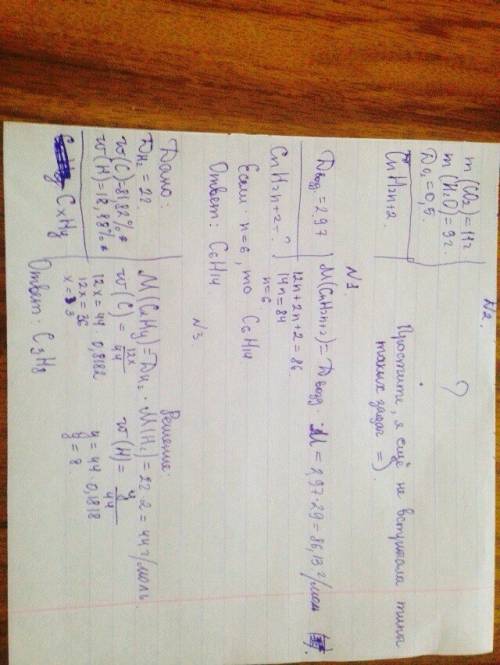 N2.
m(CO2)=11г
m(H2O)=9г.
DO2=0,5.
CnH2n+2.
?
Простите, я ещё не встречала типы
таких задач =)
N1.
Dвозд=2,97
CnH2n+2-?
M(CnH2n+2)=Dвозд·M=2,97·29=86,13г/моль
12n+2n+2=86.
14n=84
n=6
Если n=6, то C6H14
Ответ: C6H14
N3
Дано:
DH2=22
w(C)=81,82%
w(H)=18,88%
CxHy
Решение:
M(CxHy)=DH2·M(H2)=22·2=44г/моль.
w(C)=12x/44
12x=44·0,8182
12x=36
x=3
w(H)=y/44
y=44·0,1818
y=8
Ответ: C3H8